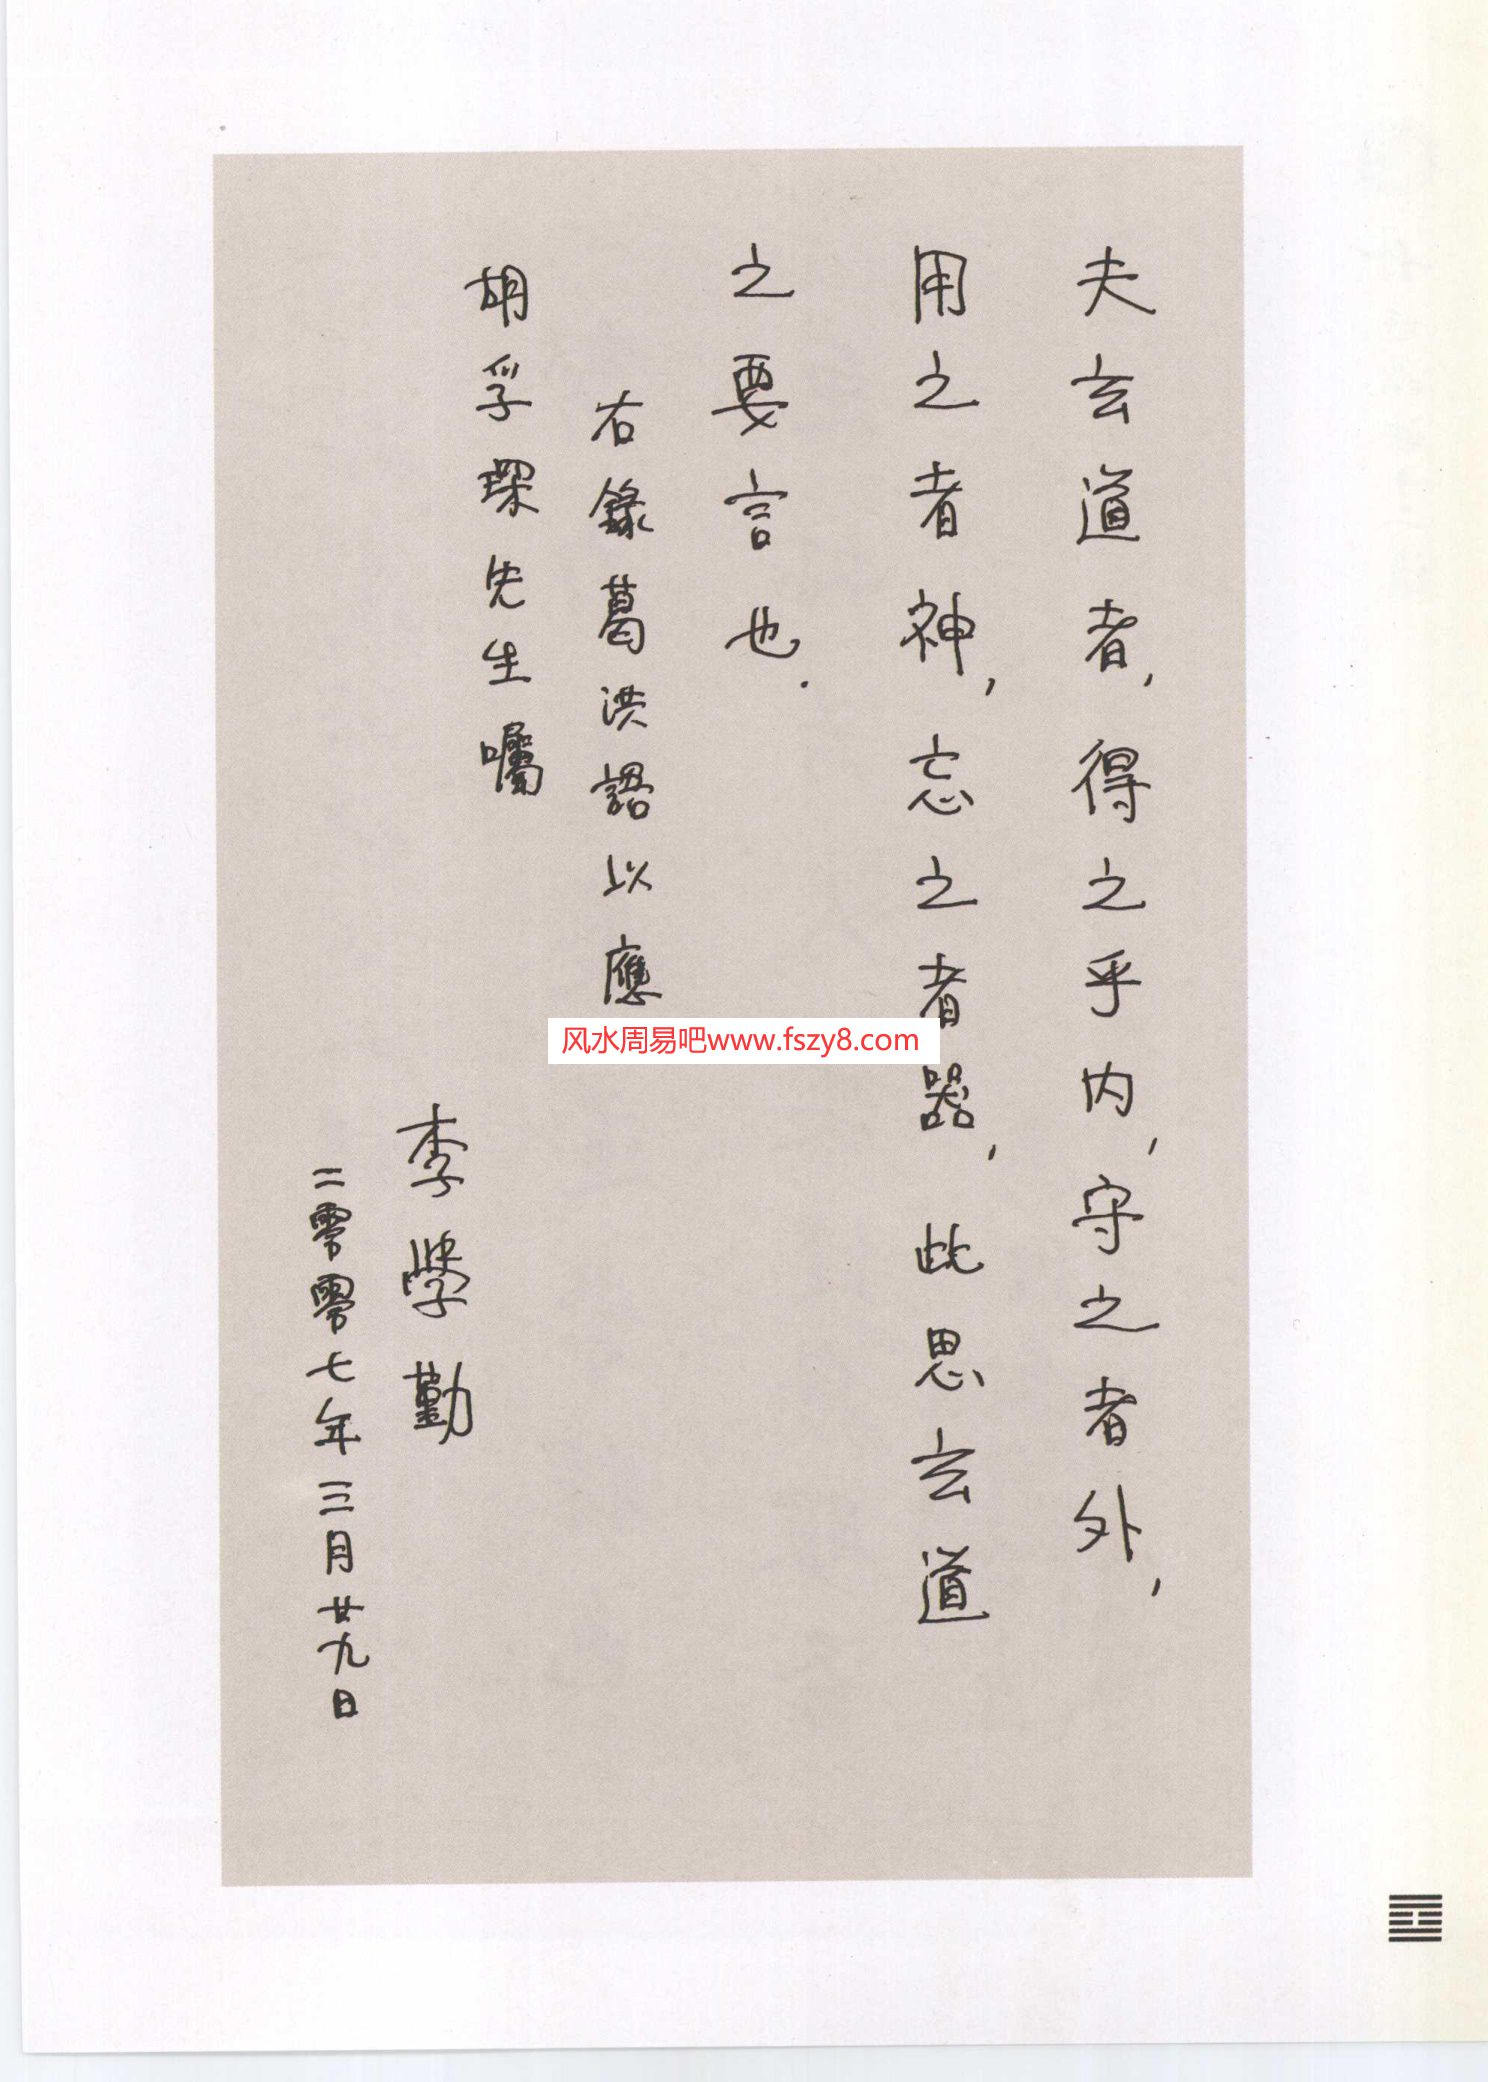 夫玄道者,得之乎内,守之者外,
用之者神,忘之者器,此思玄道
之要言也.
右錄葛洪語以應
胡孚琛先生囑
李學勤
二零零七年三月廿九日
风水周易吧www.fszy8.com